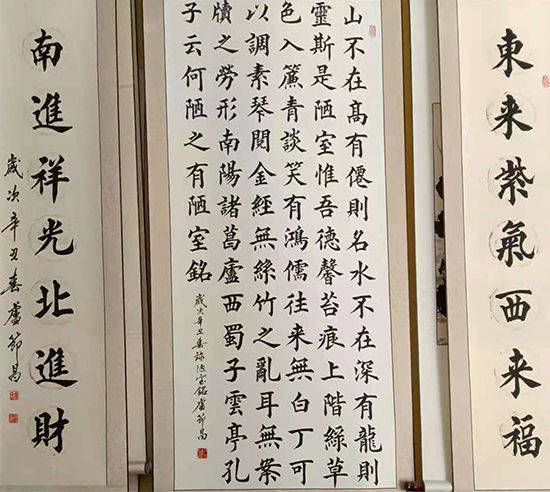 東来紫氣西来福
山不在高有僊則名水不在深有龍則
靈斯是陋室惟吾德馨苔痕上階綠草
色入簾青談笑有鴻儒往来無白丁可
以調素琴閱金經無絲竹之亂耳無案
牘之勞形南陽諸葛廬西蜀子雲亭孔
子云何陋之有陋室銘
歲次辛丑春錄陋室銘盧節昌
南進祥光北進財
歲次辛丑春盧節昌